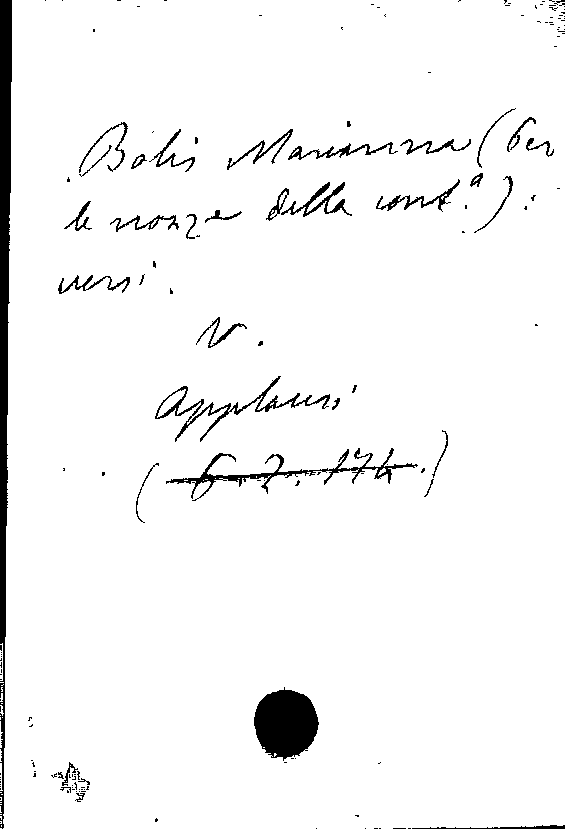 Bolis Marianna (Per
le nozze della cont.a).
versi.
V.
Applausi
(6.2.174.)